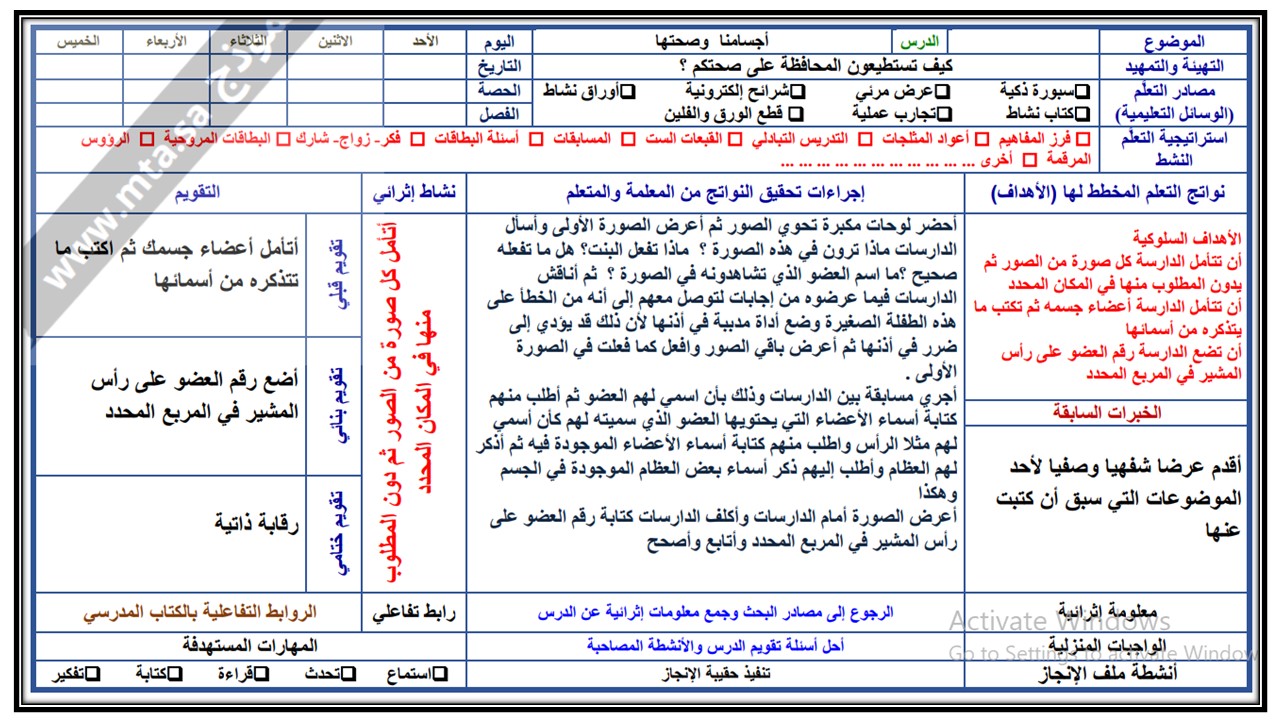 الموضوع
الدرس
أجسامنا وصحتها
اليوم
الأحد
الاثنين
الثلاثاء
الأربعاء
الخميس
التهيئة والتمهيد
كيف تستطيعون المحافظة على صحتكم ؟
التاريخ
مصادر التعلّم
(الوسائل التعليمية)
سبورة ذكية
عرض مرئي
شرائح إلكترونية
أوراق نشاط
الحصة
كتاب نشاط
تجارب عملية
قطع الورق والفلين
الفصل
استراتيجية التعلّم
النشط
فرز المفاهيم □ أعواد المثلجات □ التدريس التبادلي □ القبعات الست □ المسابقات □ أسئلة البطاقات □ فكر- زواج- شارك □ البطاقات المروحية □ الرؤوس
المرقمة □ أخرى ... ... ... ... ... ... ... ... ... ... ...
نواتج التعلم المخطط لها (الأهداف)
إجراءات تحقيق النواتج من المعلمة والمتعلم
نشاط إثرائي
التقويم
الأهداف السلوكية
أن تتأمل الدارسة كل صورة من الصور ثم
يدون المطلوب منها في المكان المحدد
أن تتأمل الدارسة أعضاء جسمه ثم تكتب ما
يتذكره من أسمائها
أن تضع الدارسة رقم العضو على رأس
المشير في المربع المحدد
الخبرات السابقة
أقدم عرضا شفهيا وصفيا لأحد
الموضوعات التي سبق أن كتبت
عنها
أحضر لوحات مكبرة تحوي الصور ثم أعرض الصورة الأولى وأسأل
الدارسات ماذا ترون في هذه الصورة ؟ ماذا تفعل البنت؟ هل ما تفعله
صحيح ؟ما اسم العضو الذي تشاهدونه في الصورة ؟ ثم أناقش
الدارسات فيما عرضوه من إجابات لتوصل معهم إلى أنه من الخطأ على
هذه الطفلة الصغيرة وضع أداة مدببة في أذنها لأن ذلك قد يؤدي إلى
ضرر في أذنها ثم أعرض باقي الصور وافعل كما فعلت في الصورة
الأولى .
أجري مسابقة بين الدارسات وذلك بأن اسمي لهم العضو ثم أطلب منهم
كتابة أسماء الأعضاء التي يحتويها العضو الذي سميته لهم كأن أسمي
لهم مثلا الرأس واطلب منهم كتابة أسماء الأعضاء الموجودة فيه ثم أذكر
لهم العظام وأطلب إليهم ذكر أسماء بعض العظام الموجودة في الجسم
وهكذا
أعرض الصورة أمام الدارسات وأكلف الدارسات كتابة رقم العضو على
رأس المشير في المربع المحدد وأتابع وأصحح
أتأمل كل صورة من الصور ثم دون المطلوب
منها في المكان المحدد
تقويم قبلي
أتأمل أعضاء جسمك ثم اكتب ما
تتذكره من أسمائها
تقويم بنائي
أضع رقم العضو على رأس
المشير في المربع المحدد
تقويم ختامي
رقابة ذاتية
معلومة إثرائية
الرجوع إلى مصادر البحث وجمع معلومات إثرائية عن الدرس
رابط تفاعلي
الروابط التفاعلية بالكتاب المدرسي
الواجبات المنزلية
أحل أسئلة تقويم الدرس والأنشطة المصاحبة
المهارات المستهدفة
أنشطة ملف الإنجاز
تنفيذ حقيبة الإنجاز
استماع
تحدث
قراءة
كتابة
تفكير
نموذج www.mta.sa
Activate Windows
Go to Settings to activate Window